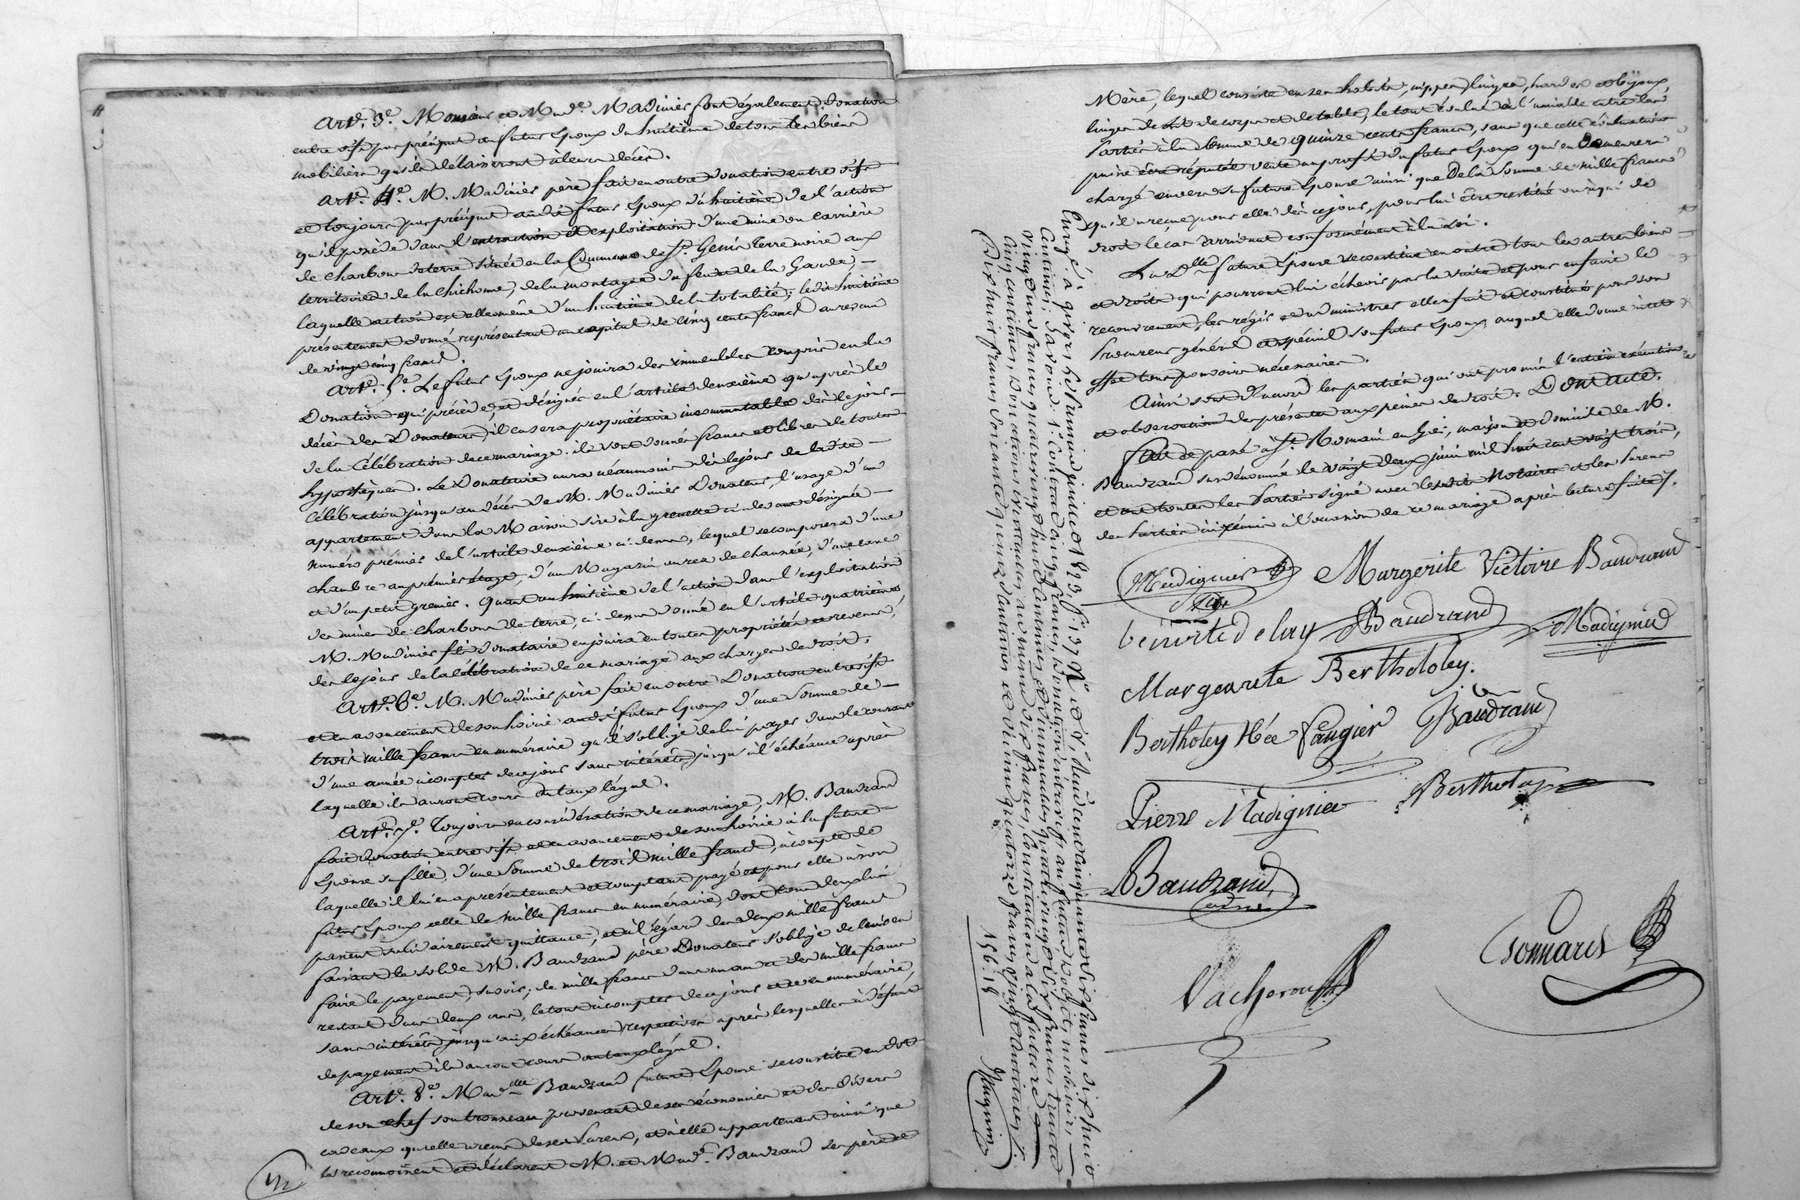 Art. 3e. Monsieur et Made. Madinier font également Donation
entre vifs par préciput au futur Epoux du huitième de tous les biens
mobiliers qu'ils délaisseront à leurs décès.
Art. 4e. M. Madinier père fait en outre donation entre vifs
et toujours par préciput audit futur Epoux du huitième de l'action
qu'il possède dans l'extraction et exploitation d'une mine ou carrière
de charbons de terre située en la Commune de St. Genis Terrenoire aux
territoires de la Chichonne, de la montagne du feu et de la Garde
laquelle action est elle même d'un huitième de la totalité; ledit huitième
présentement donné représentant un capital de Cinq cents francs au revenu
de vingt cinq francs.
Art. 5e. Le futur Epoux ne jouira des immeubles compris en la
Donation qui précède, et désignés en l'article deuxième qu'après le
décès des Donateurs; il en sera propriétaire incommutable dès le jour
de la Célébration de ce mariage. ils sont donnés francs et libres de toutes
hypothèques. Le Donataire aura néanmoins dès le jour de ladite
Célébration jusqu'au décès de M. Madinier Donateur, l'usage d'un
appartement dans la Maison sise à la grenette ci dessus désignée
numéro premier de l'article deuxième ci dessus, lequel se composera d'une
chambre au premier étage, d'un Magasin au rez de chaussée, d'une cave
et d'un petit grenier. Quant au huitième de l'action dans l'exploitation
des mines de charbons de terre, ci dessus donné en l'article quatrième,
M. Madinier fils donataire en jouira en toute propriété et revenus,
dès le jour de la célébration de ce mariage aux charges de droit.
Art. 6e. M. Madinier père fait en outre Donation entre vifs
et en avancement de son hoirie audit futur Epoux d'une Somme de
trois mille francs en numéraire qu'il s'oblige de lui payer dans le courant
d'une année à compter de ce jour sans intérêts jusqu'à l'échéance après
laquelle ils auront cours au taux légal.
Art. 7e. Toujours en considération de ce mariage, M. Baudrand
fait donation entre vifs et en avancement de son hoirie à la future
Epouse sa fille, d'une Somme de trois mille francs, à compte de
laquelle il lui en a présentement et comptant payé et pour elle à son
futur Epoux celle de mille francs en numéraire, dont tous deux lui
passent solidairement quittance, et à l'égard des deux mille francs
faisant le solde M. Baudrand père Donateur s'oblige de leur en
faire le payement, savoir, de mille francs dans un an et des mille francs
restant dans deux ans, le tout à compter de ce jour et en numéraire,
sans intérêts jusqu'aux échéances respectives après lesquelles à défaut
de payement ils auront cours au taux légal.
Art. 8e. Mademlle Baudrand future Epouse se constitue en dot
de son chef son trousseau provenant de ses économies et des divers
cadeaux qu'elle a reçus de ses Parens, et à elle appartenant ainsi que
les reconnoissent et déclarent M. et Made. Baudrand ses père et
Mère, lequel consiste en ses habits, nippes, linges, hardes et bijoux,
linges de lit de corps et de table, le tout évalué à l'amiable entre les
Parties à la somme de quinze cents francs, sans que cette évaluation
puisse être réputée vente au profit du futur Epoux qui en demeurera
chargé envers sa future Epouse ainsi que de la Somme de mille francs
qu'il a reçue pour elle dès ce jour, pour lui être restitué ou à qui de
droit le cas arrivant conformément à la loi.
La Dlle future Epouse se constitue en outre tous les autres biens
et droits qui pourront lui échoir par la suite et pour en faire le
recouvrement, les régir et administrer elle a fait et constitué pour son
Procureur général et spécial son futur Epoux, auquel elle donne à cet
effet tous pouvoirs nécessaires.
Ainsi sont d'accord les parties qui ont promis l'entière exécution
et observation des présentes aux peines de droit. Dont acte.
Fait et passé à St. Romain en Gier, maison et domicile de M.
Baudrand susdénommé le vingt deux juin mil huit cent vingt trois,
et ont toutes les Parties signé avec lesdits Notaires et les Parens
des Parties réunis à l'occasion de ce mariage après lecture faite.
Madignier
Margerite Victoire Baudrand
benoite delay
Baudrand
Madignier
Margeurite Bertholey.
Bertholey Née Faugier
Baudrand
Pierre Madignier
Bertholey
Baudrand
Vacheron
Bonnard
Enregistré à Givors le 1823, fo. 137
centimes; savoir: 1o. Contrat cinq francs, donation entre vifs au futur
156.18
1/2